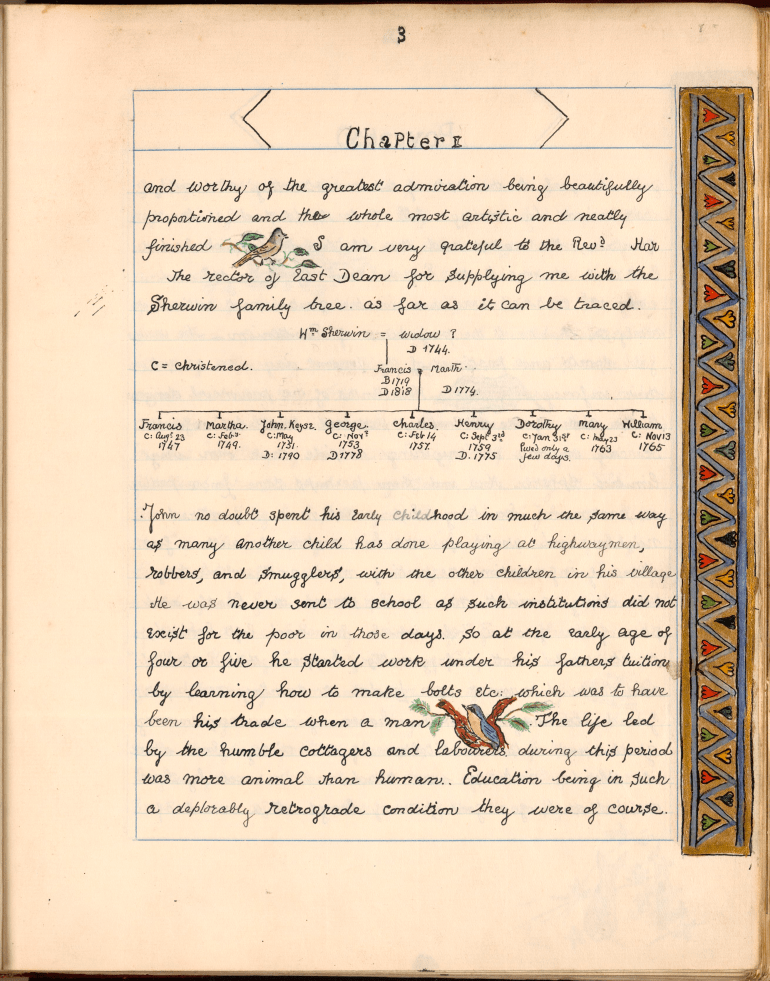 3
Chapter II
and worthy of the greatest admiration being beautifully
proportioned and the whole most artistic and neatly
finished I am very grateful to the Revd Har
The rector of East Dean for supplying me with the
Sherwin family tree. as far as it can be traced.
Wm Sherwin = widow ?
D 1744.
C = christened.
Francis = Marth.
B 1719
D 1818
D 1774.
Francis Martha. John, Keysz. George. Charles. Henry Dorothy Mary William
C: Augt 23 C: Feb C: May C: Nov C: Feb 14 C: Sept 3rd C: Jan 31st C: May 23 C: Nov 13
1747 1749. 1751. 1753 1757. 1759 lived only a 1763 1765
D: 1790 D 1778 D. 1775 few days.
John no doubt spent his Early childhood in much the same way
as many another child has done playing at highwaymen,
robbers, and smugglers, with the other children in his village
He was never sent to school as such institutions did not
Exist for the poor in those days. So at the Early age of
four or five he started work under his fathers tuition
by learning how to make bolts Etc: which was to have
been his trade when a man The life led
by the humble cottagers and labourers during this period
was more animal than human.. Education being in such
a deplorably retrograde condition they were of course.